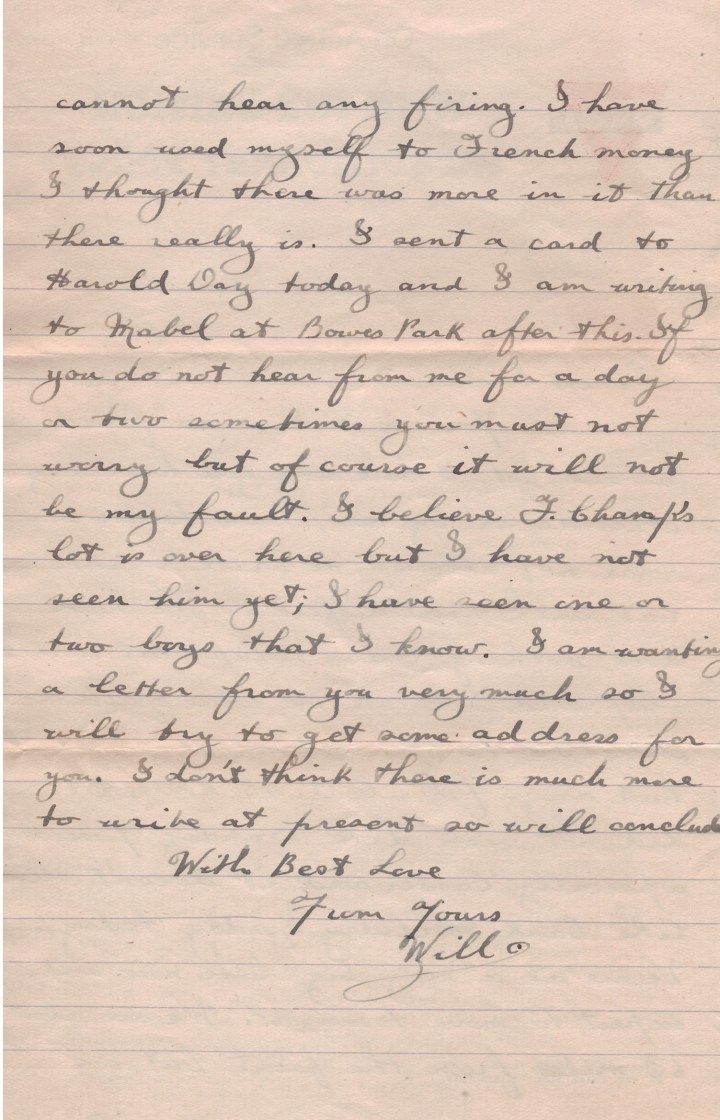 cannot hear any firing. I have
soon used myself to French money
I thought there was more in it than
there really is. I sent a card to
Harold Day today and I am writing
to Mabel at Bowes Park after this. If
you do not hear from me for a day
or two sometimes you must not
worry but of course it will not
be my fault. I believe F. Champs
lot is over here but I have not
seen him yet; I have seen one or
two boys that I know. I am wanting
a letter from you very much so I
will try to get some address for
you. I don't think there is much more
to write at present so will conclude
With Best Love
From Yours
Will